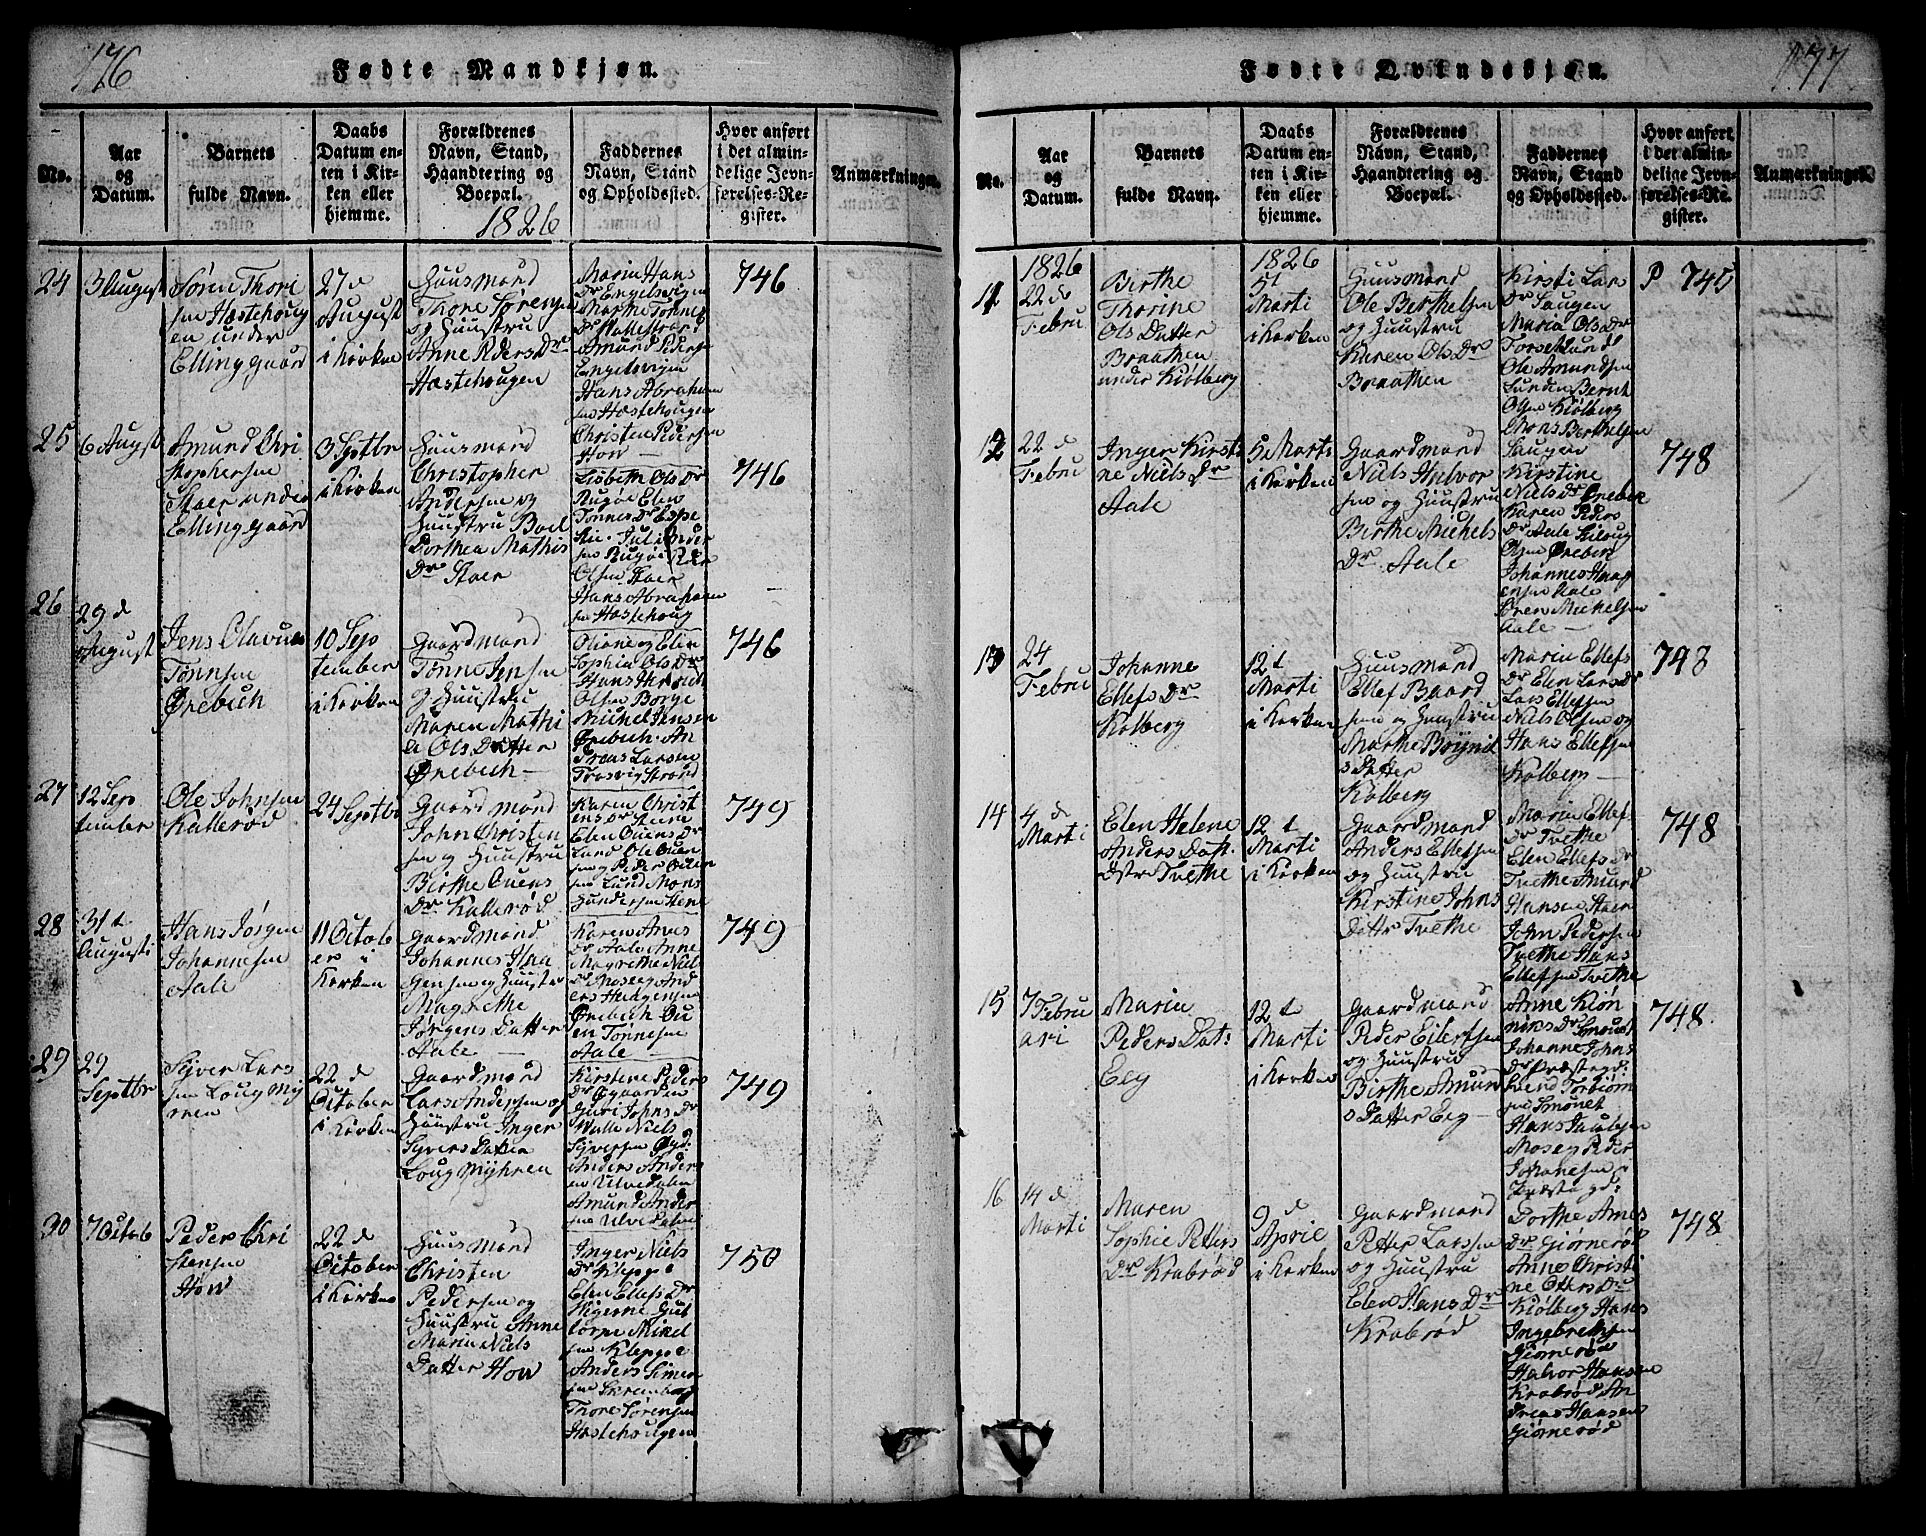 176
Fødte Mandkjøn.
No.
Aar
og
Datum.
Barnets
fulde Navn.
Daabs
Datum en-
ten i Kir-
ken eller
hjemme.
Forældrenes
Navn, Stand,
Haandtering og
Boepæl.
1826
Faddernes
Navn, Stand
og Opholdssted.
Hvor anført
i det almin-
delige Jevn-
førelses-Re-
gister.
Anmærkninger.
24
3 August
Søren Thore
sen Hæstehoug
en under
Ellinggaard
27 d
August
i Kirken
Huusmand
Thore Sørensen
og Huustru
Anne Peders Dr
Hæstehougen
Maria Hans
Dr Engelsvigen
Marthe Tønnes
Dr
Amund Peder
sen
Engelsvigen
Hans Abraham
sen Hæstehougen
Christen Pedersen
How
746
25
6 August
Amund Chri
stophersen
Staer under
Ellinggaard
3 Septbr
i Kirken
Huusmand
Christopher
Andersen og
Huustru Boel
Dorthea Mathis
Dr Staer
Lisbeth Ols Dr
Rugøe Elen
Tønnes Dr
Juli Ander
sen Rugøe
Olsen Staer
Hans Abraham
sen Hæstehoug
746
26
29 d
August
Jens Olavus
Tønnsen
Ørebech
10 Sep
tember
i Kirken
Gaardmand
Tønne Jensen
og Huustru
Maren Mathi
e Ols Datter
Ørebech
Oliane og Elen
Sophia Ols Dr
Hans
Olsen Borge
Michel Jensen
Ørebech An
dreas Larsen
Trosvig Strand
746
27
12 Sep
tember
Ole Johnsen
Kallerød
24 Septbr
Gaardmand
John Christen
sen og Huustru
Birthe Ouens
Dr Kallerød
Karen Christ
ens Dr
Elen Ouens Dr
Lund Ole Ouen
sen og Peder Ouen
sen Lund Mons
Gundersen
749
28
31 t
Augusti
Hans Jørgen
Johannesen
Aale
1 Octob
er i
Kirken
Gaardmand
Johannes Haa
gensen og Huustr
Magrethe
Jørgens Datter
Aale
Karen Arves
Dr Aale Anne
Magrethe Niels
Dr Moseg And
ers Helgesen
Ørebech Ou
en Tønnesen
Aale
749
29
29
Septbr
Syver Lars
sen Loug My
hren
22 d
October
i Kirken
Gaardmand
Lars Andersen og
Huustru Inger
Syvers Datter
Loug Myhren
Kirstine Peders
Dr Øgaarden
Guri Johns Dr
Walle Niels
Syversen Øgd.
Anders Anders
en Ulvedalen
Amund Ander
sen Ulvedalen
749
30
7 Octob
Peder Chri
stensen
How
22 d
October
i Kirken
Huusmand
Christen
Pedersen og
Huustru Anne
Maria Niels
Datter How
Inger Niels
Dr Kleppe
Elen Elefs Dr
Higerne Gut
torm Mikel
sen Kleppe
Anders Simon
sen
Thore Sørensen
Hæstehougen
750
177
Fødte Qvindekjøn.
No.
Aar
og
Datum.
Barnets
fulde Navn.
Daabs
Datum en-
ten i Kir-
ken eller
hjemme.
Forældrenes
Navn, Stand,
Haandtering og
Boepæl.
Faddernes
Navn, Stand
og Opholdssted.
Hvor anført
i det almin-
delige Jevn-
førelses-Re-
gister.
Anmærkninger.
11
1826
22 d
Febru
Birthe
Thorine
Ols Datter
Braathen
under Kiølberg
1826
5t
Marti
i Kirken
Huusmand
Ole Berthelsen
og Huustru
Karen Ols Dr
Braathen
Kirsti Lars
Dr Haugen
Maria Ols Dr
Torsetlund
Ole Amundsen
Lunden Bernt
Olsen Kiølberg
Mons Berthelsen
Haugen
P 745
12
22 d
Febru
Inger Kirsti
ne Niels Dr
Aale
5 Marti
i Kirken
Gaardmand
Niels Halvor
sen og Huustru
Birthe Michels
Dr Aale
Kirstine
Niels Dr Ørebek
Karen Peders
Dr Aale
Olsen Ørebek
Johannes Haag
ensen Aale
Øren Michelsen
Aale
748
13
24
Febru
Johanne
Ellefs Dr
Kølberg
12 t
Marti
i Kirken
Huusmand
Ellef Baard
sen og Huustru
Marthe
s Datter
Kølberg
Maria Ellefs
Dr Elen Lars Dr
Lars Ellefsen
Niels Olsen og
Hans Ellefsen
Kølberg
748
14
4 d
Marti
Elen Helene
Anders Dat.
Tvethe
12 t
Marti
i Kirken
Gaardmand
Anders Ellefsen
og Huustru
Kirstine Johns
Datter Tvethe
Maria Ellef
Dr Tvethe
Elen Ellefs Dr
Tvethe Amund
Hansen Staer
John Pedersen
Tvethe Hans
Ellefsen Tvethe
748
15
7 Febru
ari
Maria
Peders Dat:
Eeg
12 t
Marti
i Kirken
Gaardmand
Peder Eilertsen
og Huustru
Birthe Amund
s Datter Eeg
Anne Kiøn
niks Dr Smouet
Johanne Johns
Dr Præstegd:
Torbiørn
sen Smouet
Hans Paulsen
Moseg Peder
Johanesen
Præstegd:
748.
16
14 d
Marti
Maren
Sophie Petters
Dr Krabrød
9 d
April
i Kirken
Gaardmand
Petter Larssen
og Huustru
Elen Hans Dr
Krabrød
Dorthe Arnes
Dr Giørnerød
Anne Christi
ne Otters Dr
Kiølberg Hans
Ingebretsen
Giørnerød
Halvor Hansen
Krabrød An
dreas Hansen
Giørnerød
748